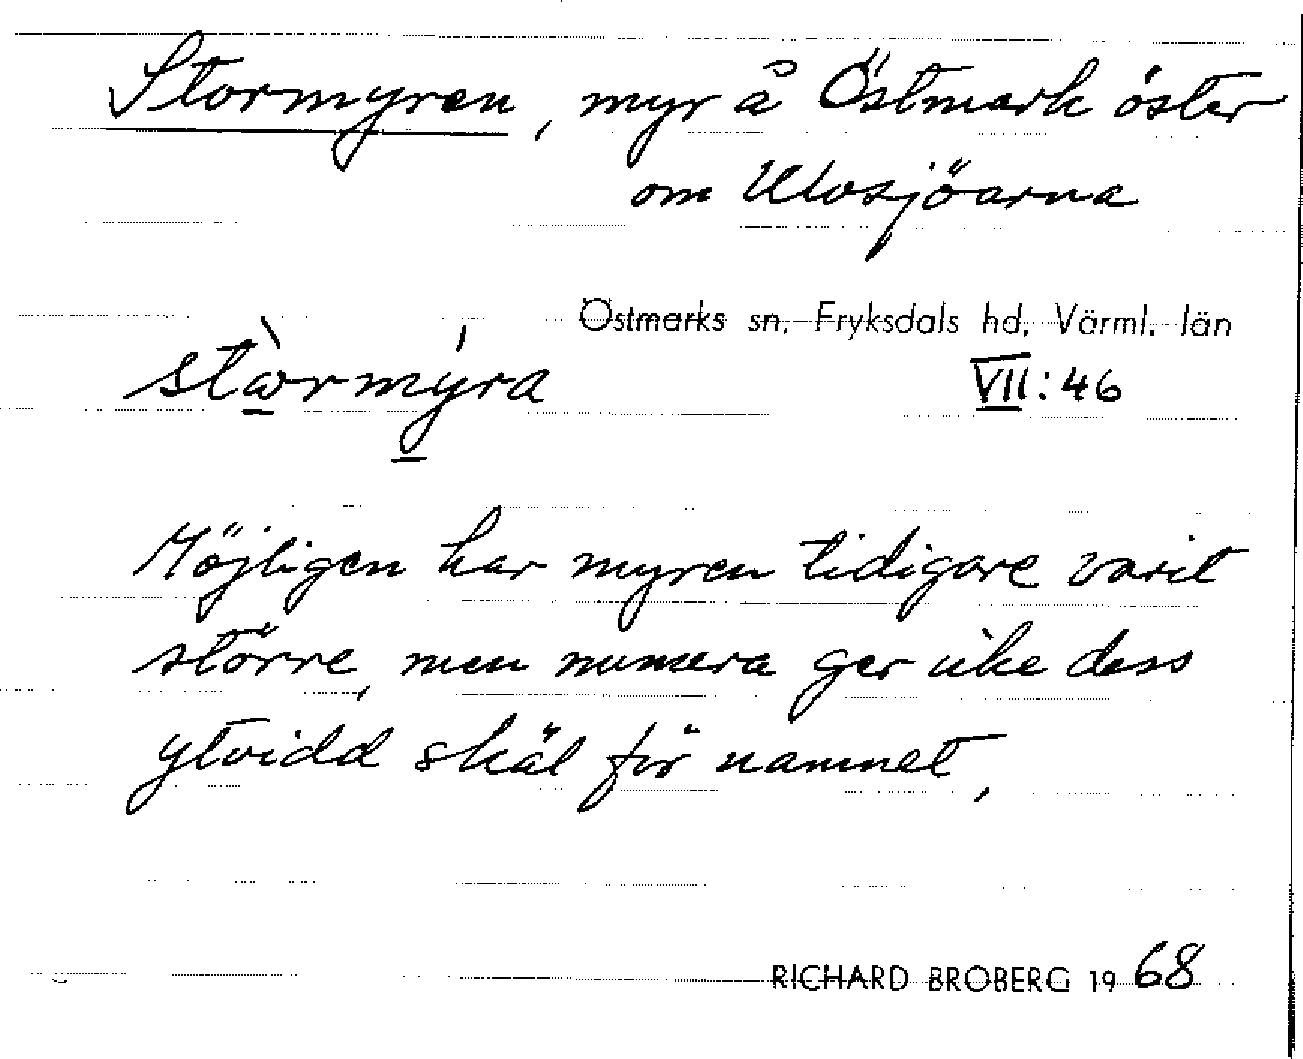 Stormyren, myr å Östmark öster
om Ulvsjöarna
Östmarks sn, Fryksdals hd, Värml. län
stὼrmýra
VII:46
Möjligen har myren tidigare varit
större, men numera ger icke dess
ytvidd skäl för namnet,
RICHARD BROBERG 1968